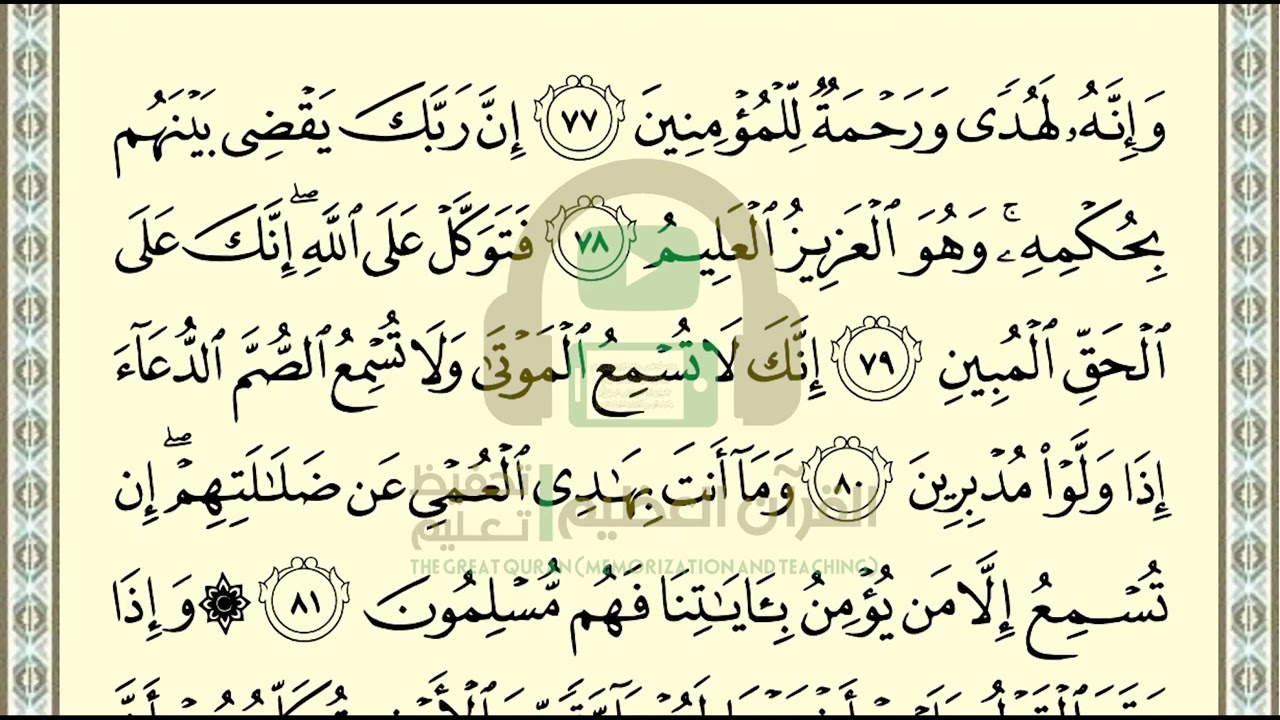 وَإِنَّهُۥ لَهُدًى وَرَحْمَةٌ لِّلْمُؤْمِنِينَ ٧٧ إِنَّ رَبَّكَ يَقْضِى بَيْنَهُم
بِحُكْمِهِۦ ۚ وَهُوَ ٱلْعَزِيزُ ٱلْعَلِيمُ ٧٨ فَتَوَكَّلْ عَلَى ٱللَّهِ ۖ إِنَّكَ عَلَى
ٱلْحَقِّ ٱلْمُبِينِ ٧٩ إِنَّكَ لَا تُسْمِعُ ٱلْمَوْتَىٰ وَلَا تُسْمِعُ ٱلصُّمَّ ٱلدُّعَآءَ
إِذَا وَلَّوْا۟ مُدْبِرِينَ ٨٠ وَمَآ أَنتَ بِهَـٰدِى ٱلْعُمْىِ عَن ضَلَـٰلَتِهِمْ ۖ إِن
القرآن العظيم تحفيظ
تعليم
THE GREAT QURAN (MEMORIZATION AND TEACHING)
تُسْمِعُ إِلَّا مَن يُؤْمِنُ بِـَٔايَـٰتِنَا فَهُم مُّسْلِمُونَ ٨١ ۞ وَإِذَا